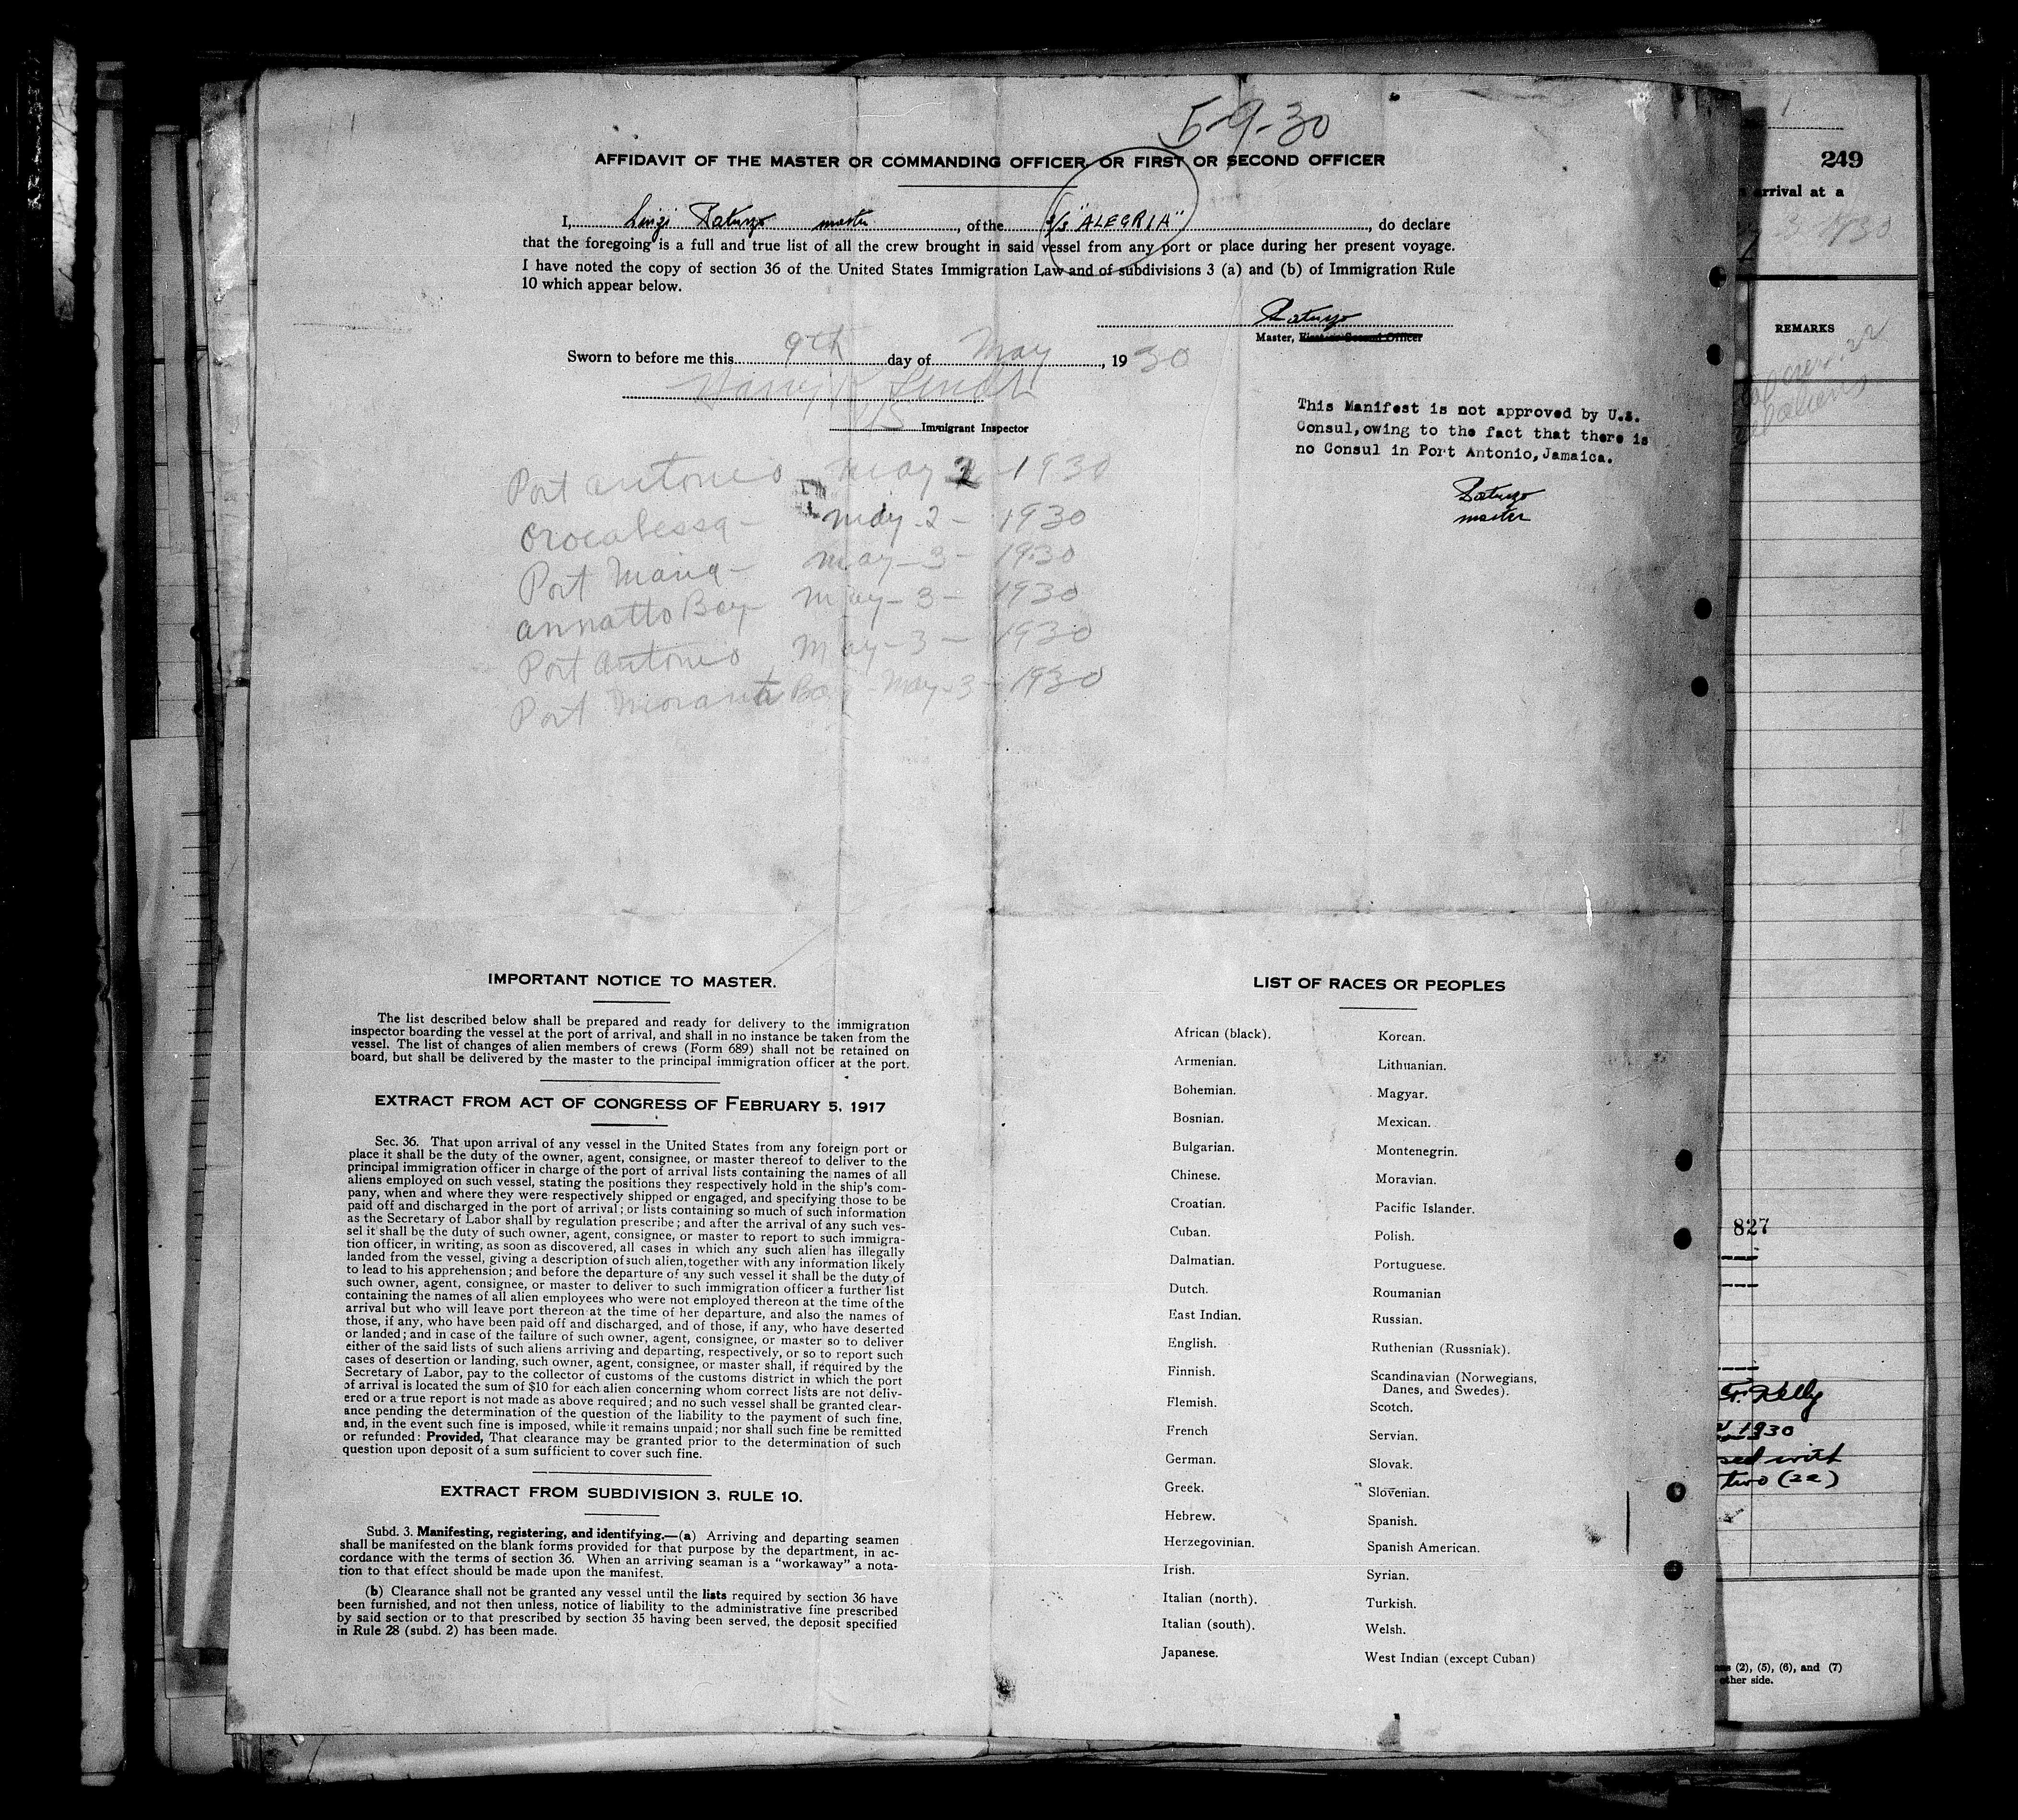 5-9-30
AFFIDAVIT OF THE MASTER OR COMMANDING OFFICER, OR FIRST OR SECOND OFFICER
I, Luigi master, of the s/s "ALEGRIA", do declare
that the foregoing is a full and true list of all the crew brought in said vessel from any port or place during her present voyage.
I have noted the copy of section 36 of the United States Immigration Law and of subdivisions 3 (a) and (b) of Immigration Rule
10 which appear below.
Master, First or Second Officer
Sworn to before me this 9th day of May, 1930
Immigrant Inspector
This Manifest is not approved by U.S.
Consul, owing to the fact that there is
no Consul in Port Antonio, Jamaica.
master
Port Antonio May 2 - 1930
Orocabessa - May - 2 - 1930
Port Maria - May - 3 - 1930
Annatto Bay - May - 3 - 1930
Port Antonio, May - 3 - 1930
Port Morant Bay - May - 3 - 1930
IMPORTANT NOTICE TO MASTER.
The list described below shall be prepared and ready for delivery to the immigration
inspector boarding the vessel at the port of arrival, and shall in no instance be taken from the
vessel. The list of changes of alien members of crews (Form 689) shall not be retained on
board, but shall be delivered by the master to the principal immigration officer at the port.
EXTRACT FROM ACT OF CONGRESS OF FEBRUARY 5, 1917
Sec. 36. That upon arrival of any vessel in the United States from any foreign port or
place it shall be the duty of the owner, agent, consignee, or master thereof to deliver to the
principal immigration officer in charge of the port of arrival lists containing the names of all
aliens employed on such vessel, stating the positions they respectively hold in the ship's com-
pany, when and where they were respectively shipped or engaged, and specifying those to be
paid off and discharged in the port of arrival; or lists containing so much of such information
as the Secretary of Labor shall by regulation prescribe; and after the arrival of any such ves-
sel it shall be the duty of such owner, agent, consignee, or master to report to such immigra-
tion officer, in writing, as soon as discovered, all cases in which any such alien has illegally
landed from the vessel, giving a description of such alien, together with any information likely
to lead to his apprehension; and before the departure of any such vessel it shall be the duty of
such owner, agent, consignee, or master to deliver to such immigration officer a further list
containing the names of all alien employees who were not employed thereon at the time of the
arrival but who will leave port thereon at the time of her departure, and also the names of
those, if any, who have been paid off and discharged, and of those, if any, who have deserted
or landed; and in case of the failure of such owner, agent, consignee, or master so to deliver
either of the said lists of such aliens arriving and departing, respectively, or so to report such
cases of desertion or landing, such owner, agent, consignee, or master shall, if required by the
Secretary of Labor, pay to the collector of customs of the customs district in which the port
of arrival is located the sum of $10 for each alien concerning whom correct lists are not deliv-
ered or a true report is not made as above required; and no such vessel shall be granted clear-
ance pending the determination of the question of the liability to the payment of such fine,
and, in the event such fine is imposed, while it remains unpaid; nor shall such fine be remitted
or refunded: Provided, That clearance may be granted prior to the determination of such
question upon deposit of a sum sufficient to cover such fine.
EXTRACT FROM SUBDIVISION 3, RULE 10.
Subd. 3. Manifesting, registering, and identifying.—(a) Arriving and departing seamen
shall be manifested on the blank forms provided for that purpose by the department, in ac-
cordance with the terms of section 36. When an arriving seaman is a "workaway" a nota-
tion to that effect should be made upon the manifest.
(b) Clearance shall not be granted any vessel until the lists required by section 36 have
been furnished, and not then unless, notice of liability to the administrative fine prescribed
by said section or to that prescribed by section 35 having been served, the deposit specified
in Rule 28 (subd. 2) has been made.
LIST OF RACES OR PEOPLES
African (black).
Armenian.
Bohemian.
Bosnian.
Bulgarian.
Chinese.
Croatian.
Cuban.
Dalmatian.
Dutch.
East Indian.
English.
Finnish.
Flemish.
French
German.
Greek.
Hebrew.
Herzegovinian.
Irish.
Italian (north).
Italian (south).
Japanese.
Korean.
Lithuanian.
Magyar.
Mexican.
Montenegrin.
Moravian.
Pacific Islander.
Polish.
Portuguese.
Roumanian
Russian.
Ruthenian (Russniak).
Scandinavian (Norwegians,
Danes, and Swedes).
Scotch.
Servian.
Slovak.
Slovenian.
Spanish.
Spanish American.
Syrian.
Turkish.
Welsh.
West Indian (except Cuban)
249
arrival at a
REMARKS
827
Kelly
1930
with
two (22)
(2), (5), (6), and (7)
other side.